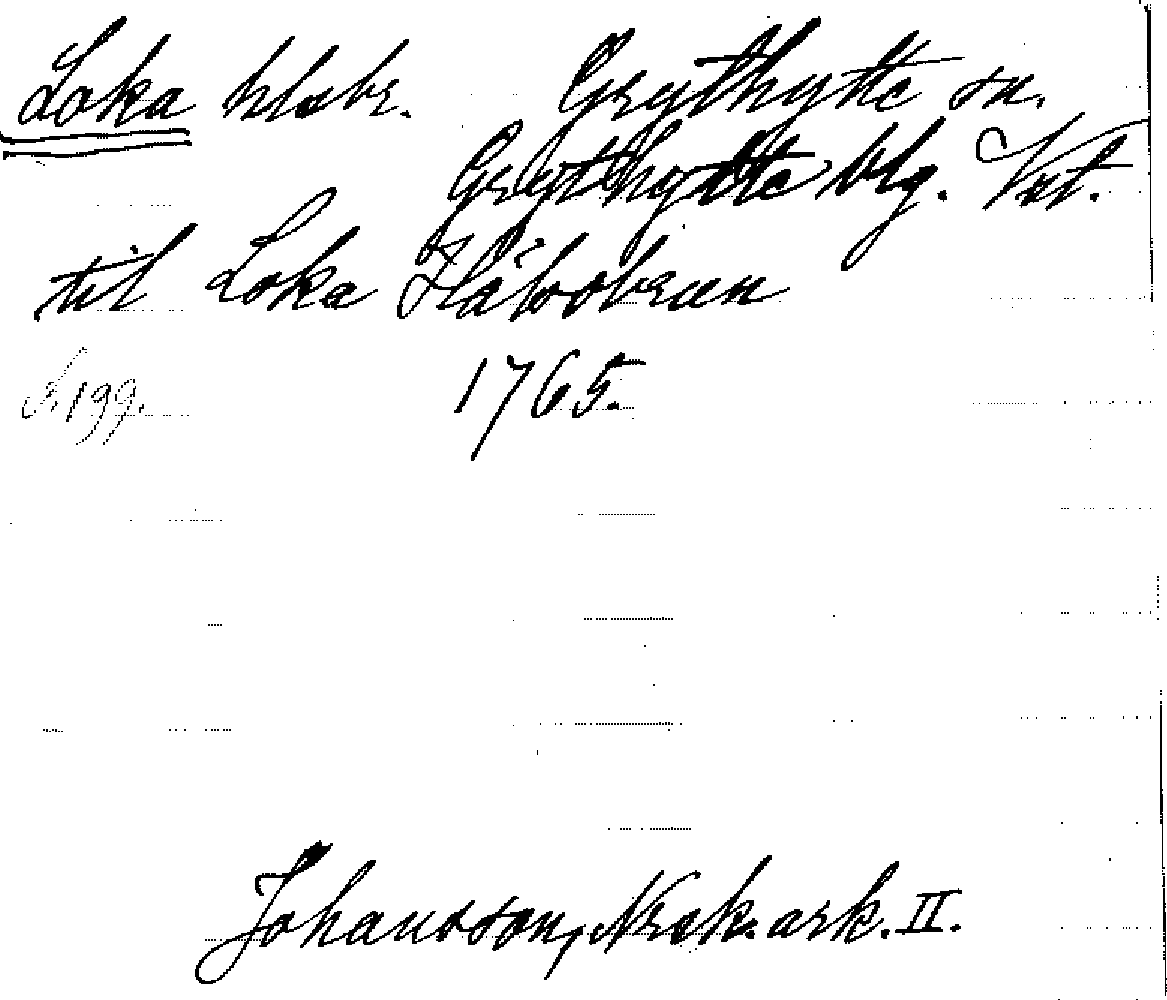 Loka hlsbr. Grythytte sn.
Grythytte blg. Vstl.
til Loka Hälsobrun
S. 199. 1765.
Johansson, Norsk. ark. II.